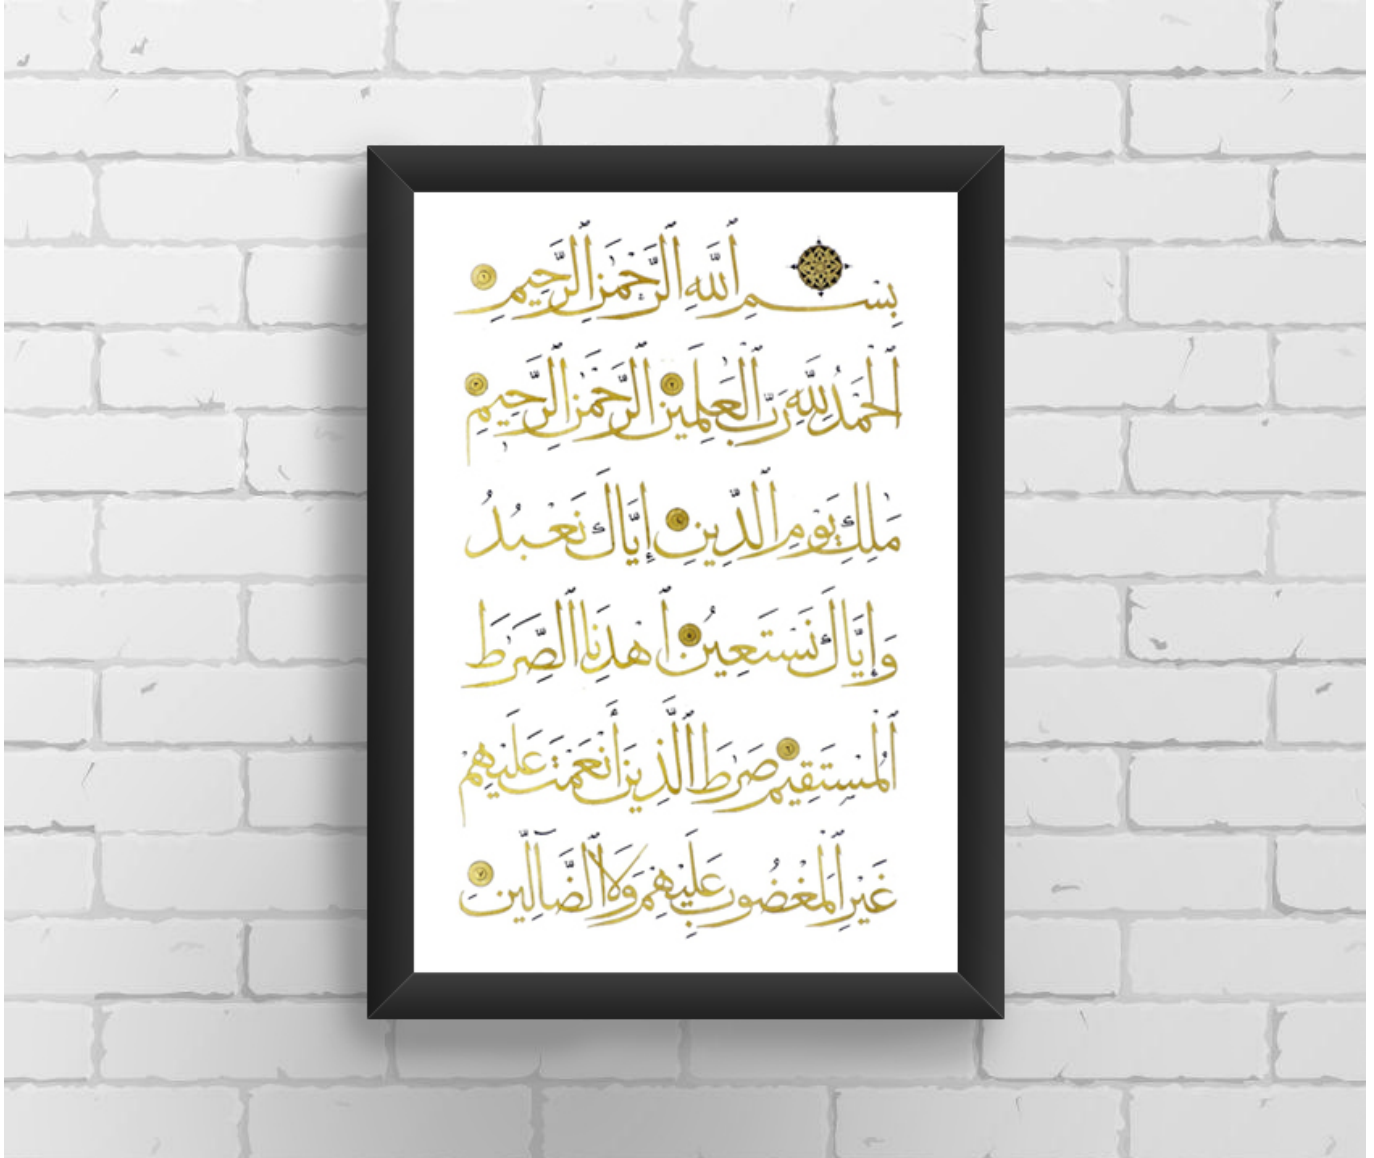 بِسْمِ ٱللَّهِ ٱلرَّحْمَٰنِ ٱلرَّحِيمِ ١
ٱلْحَمْدُ لِلَّهِ رَبِّ ٱلْعَٰلَمِينَ ٢ ٱلرَّحْمَٰنِ ٱلرَّحِيمِ ٣
مَٰلِكِ يَوْمِ ٱلدِّينِ ٤ إِيَّاكَ نَعْبُدُ
وَإِيَّاكَ نَسْتَعِينُ ٥ ٱهْدِنَا ٱلصِّرَٰطَ
ٱلْمُسْتَقِيمَ ٦ صِرَٰطَ ٱلَّذِينَ أَنْعَمْتَ عَلَيْهِمْ
غَيْرِ ٱلْمَغْضُوبِ عَلَيْهِمْ وَلَا ٱلضَّآلِّينَ ٧